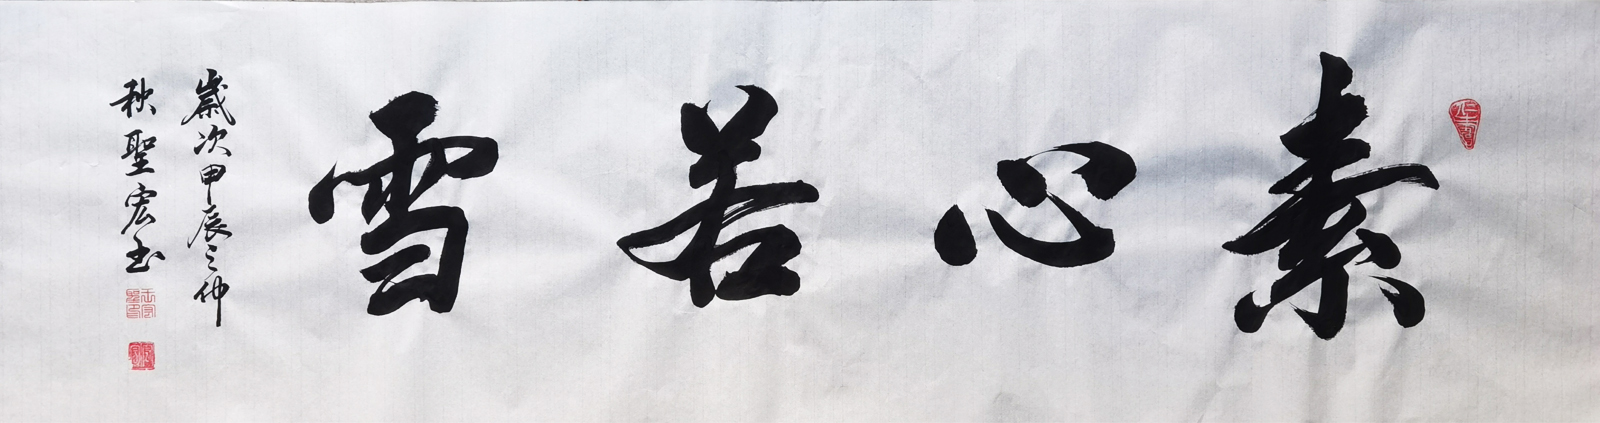 素心若雪
歲次甲辰之仲
秋聖宏玉